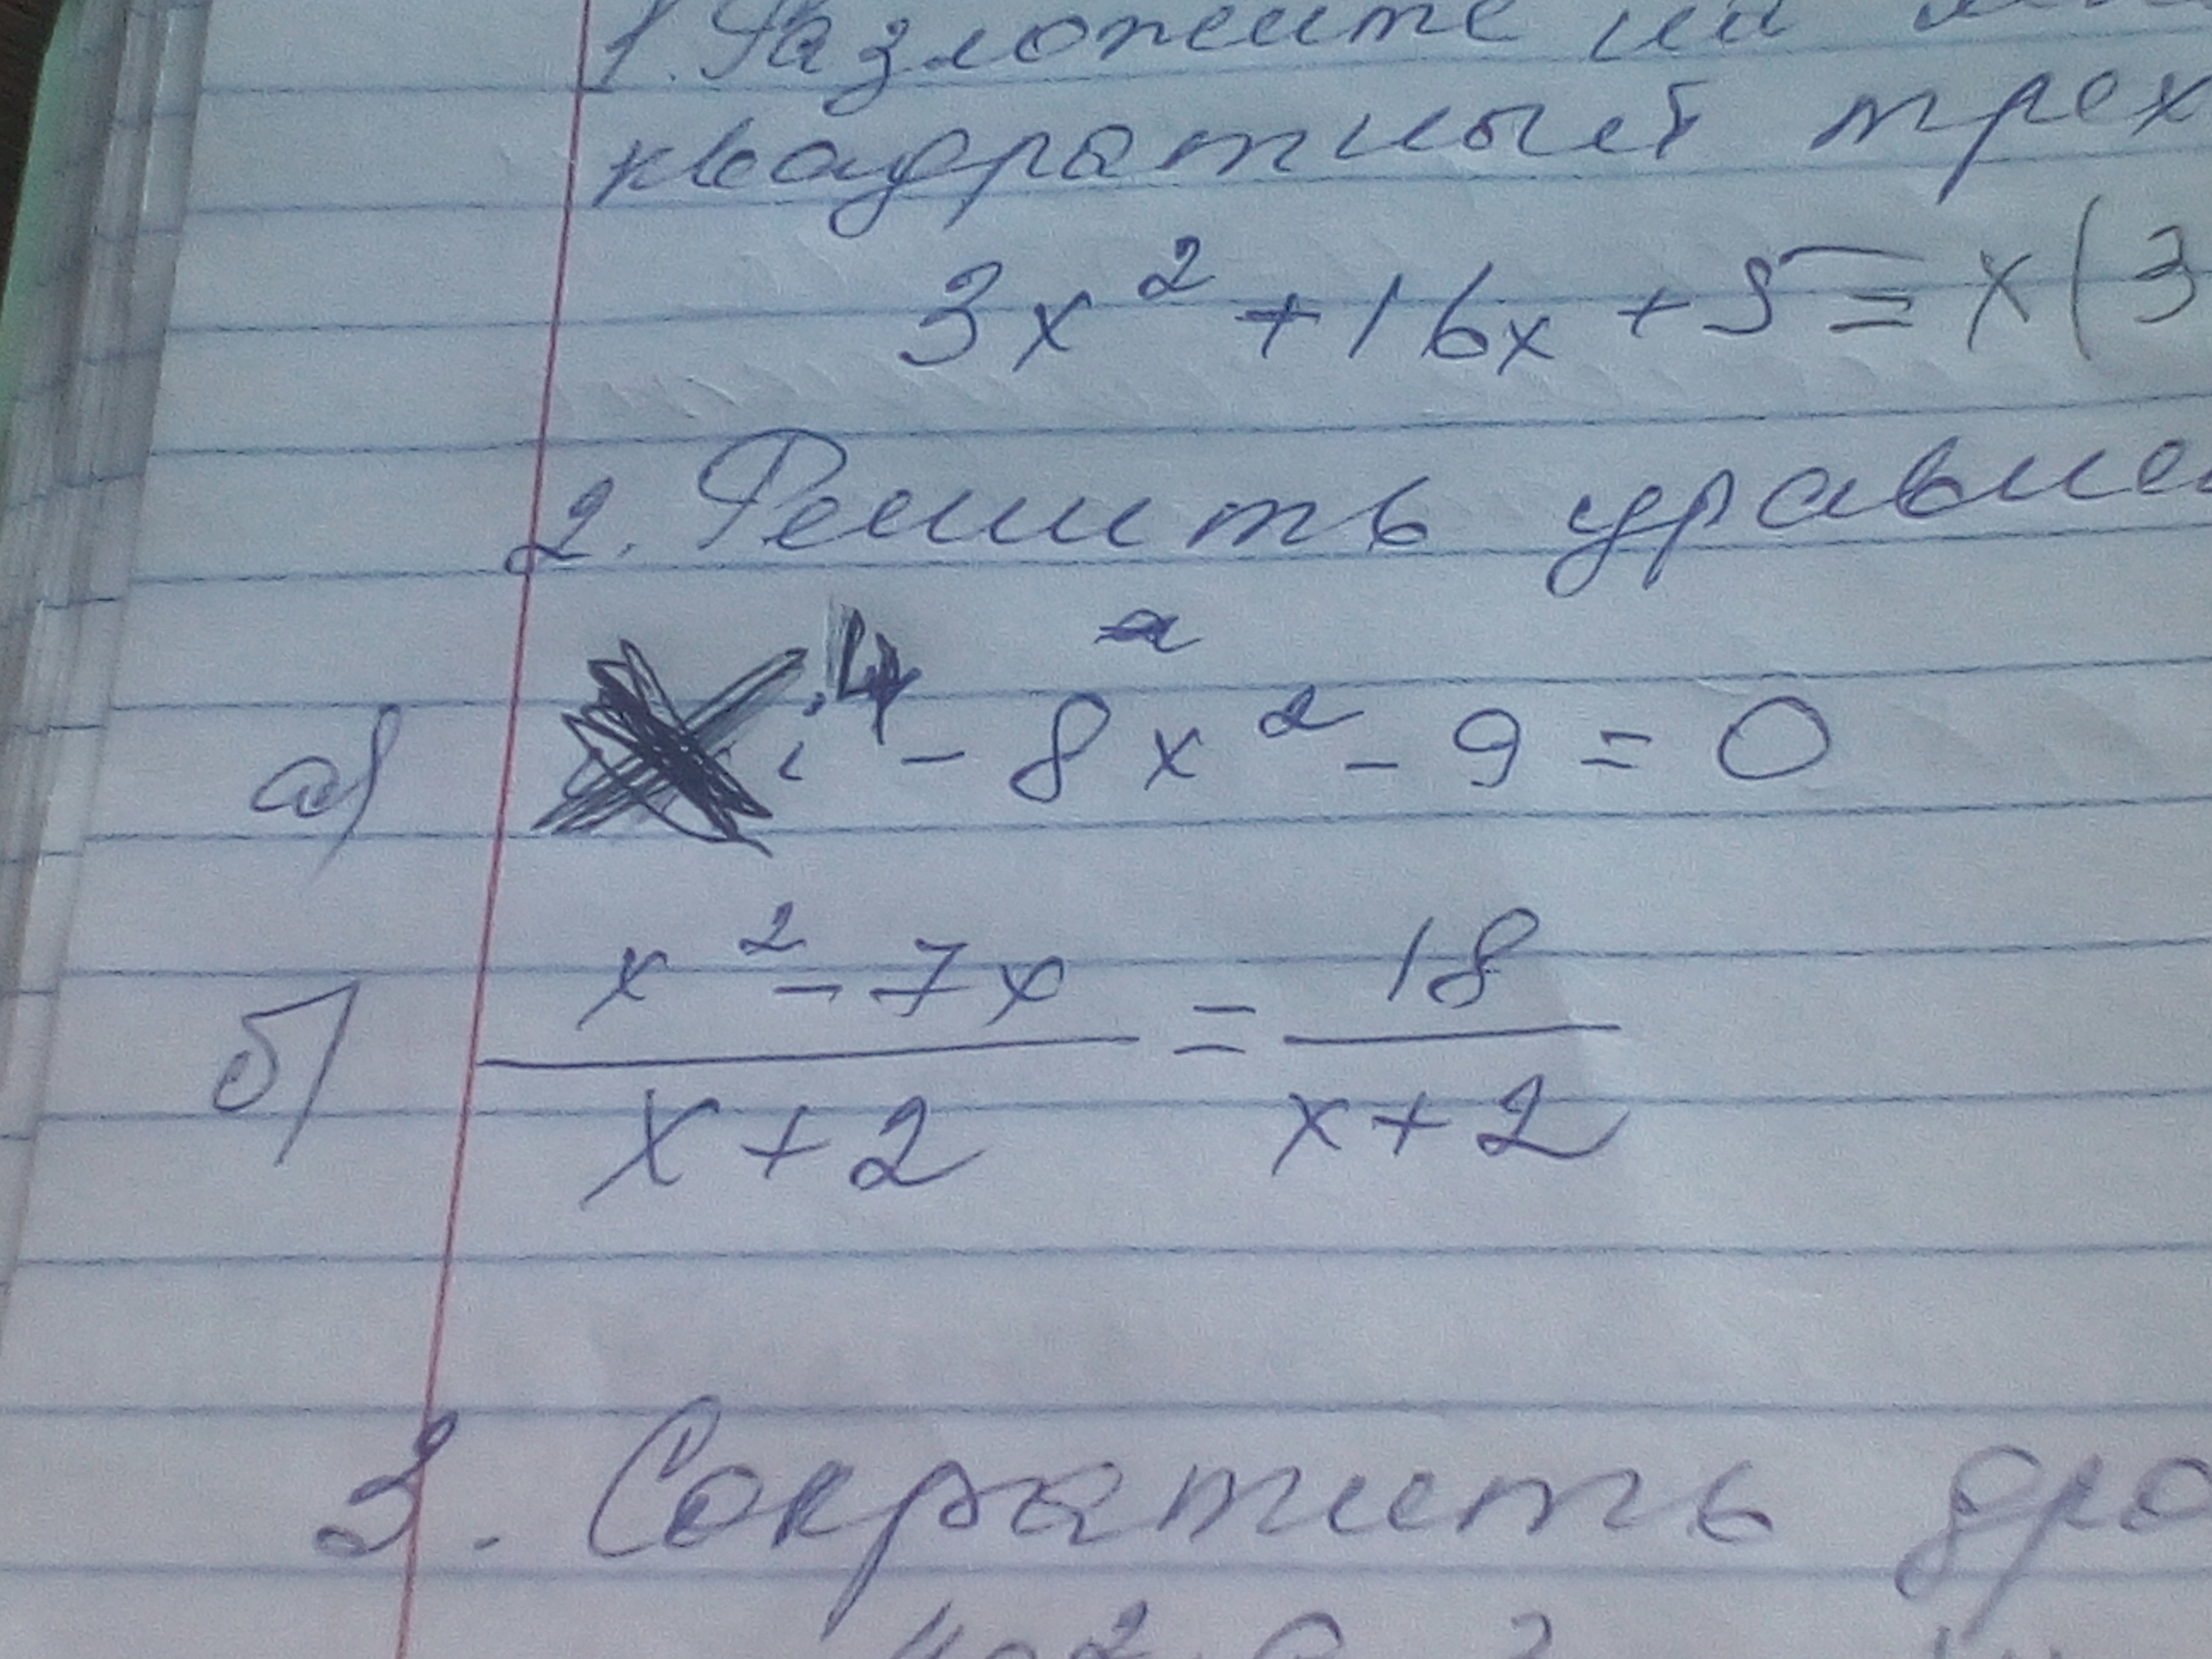 1. Разложите на
квадратный трех
3x² + 16x + 5 = x(3
2. Решить уравне
а) ⁴ - 8x² - 9 = 0
б) x² - 7x / x + 2 = 18 / x + 2
3. Сократить дро